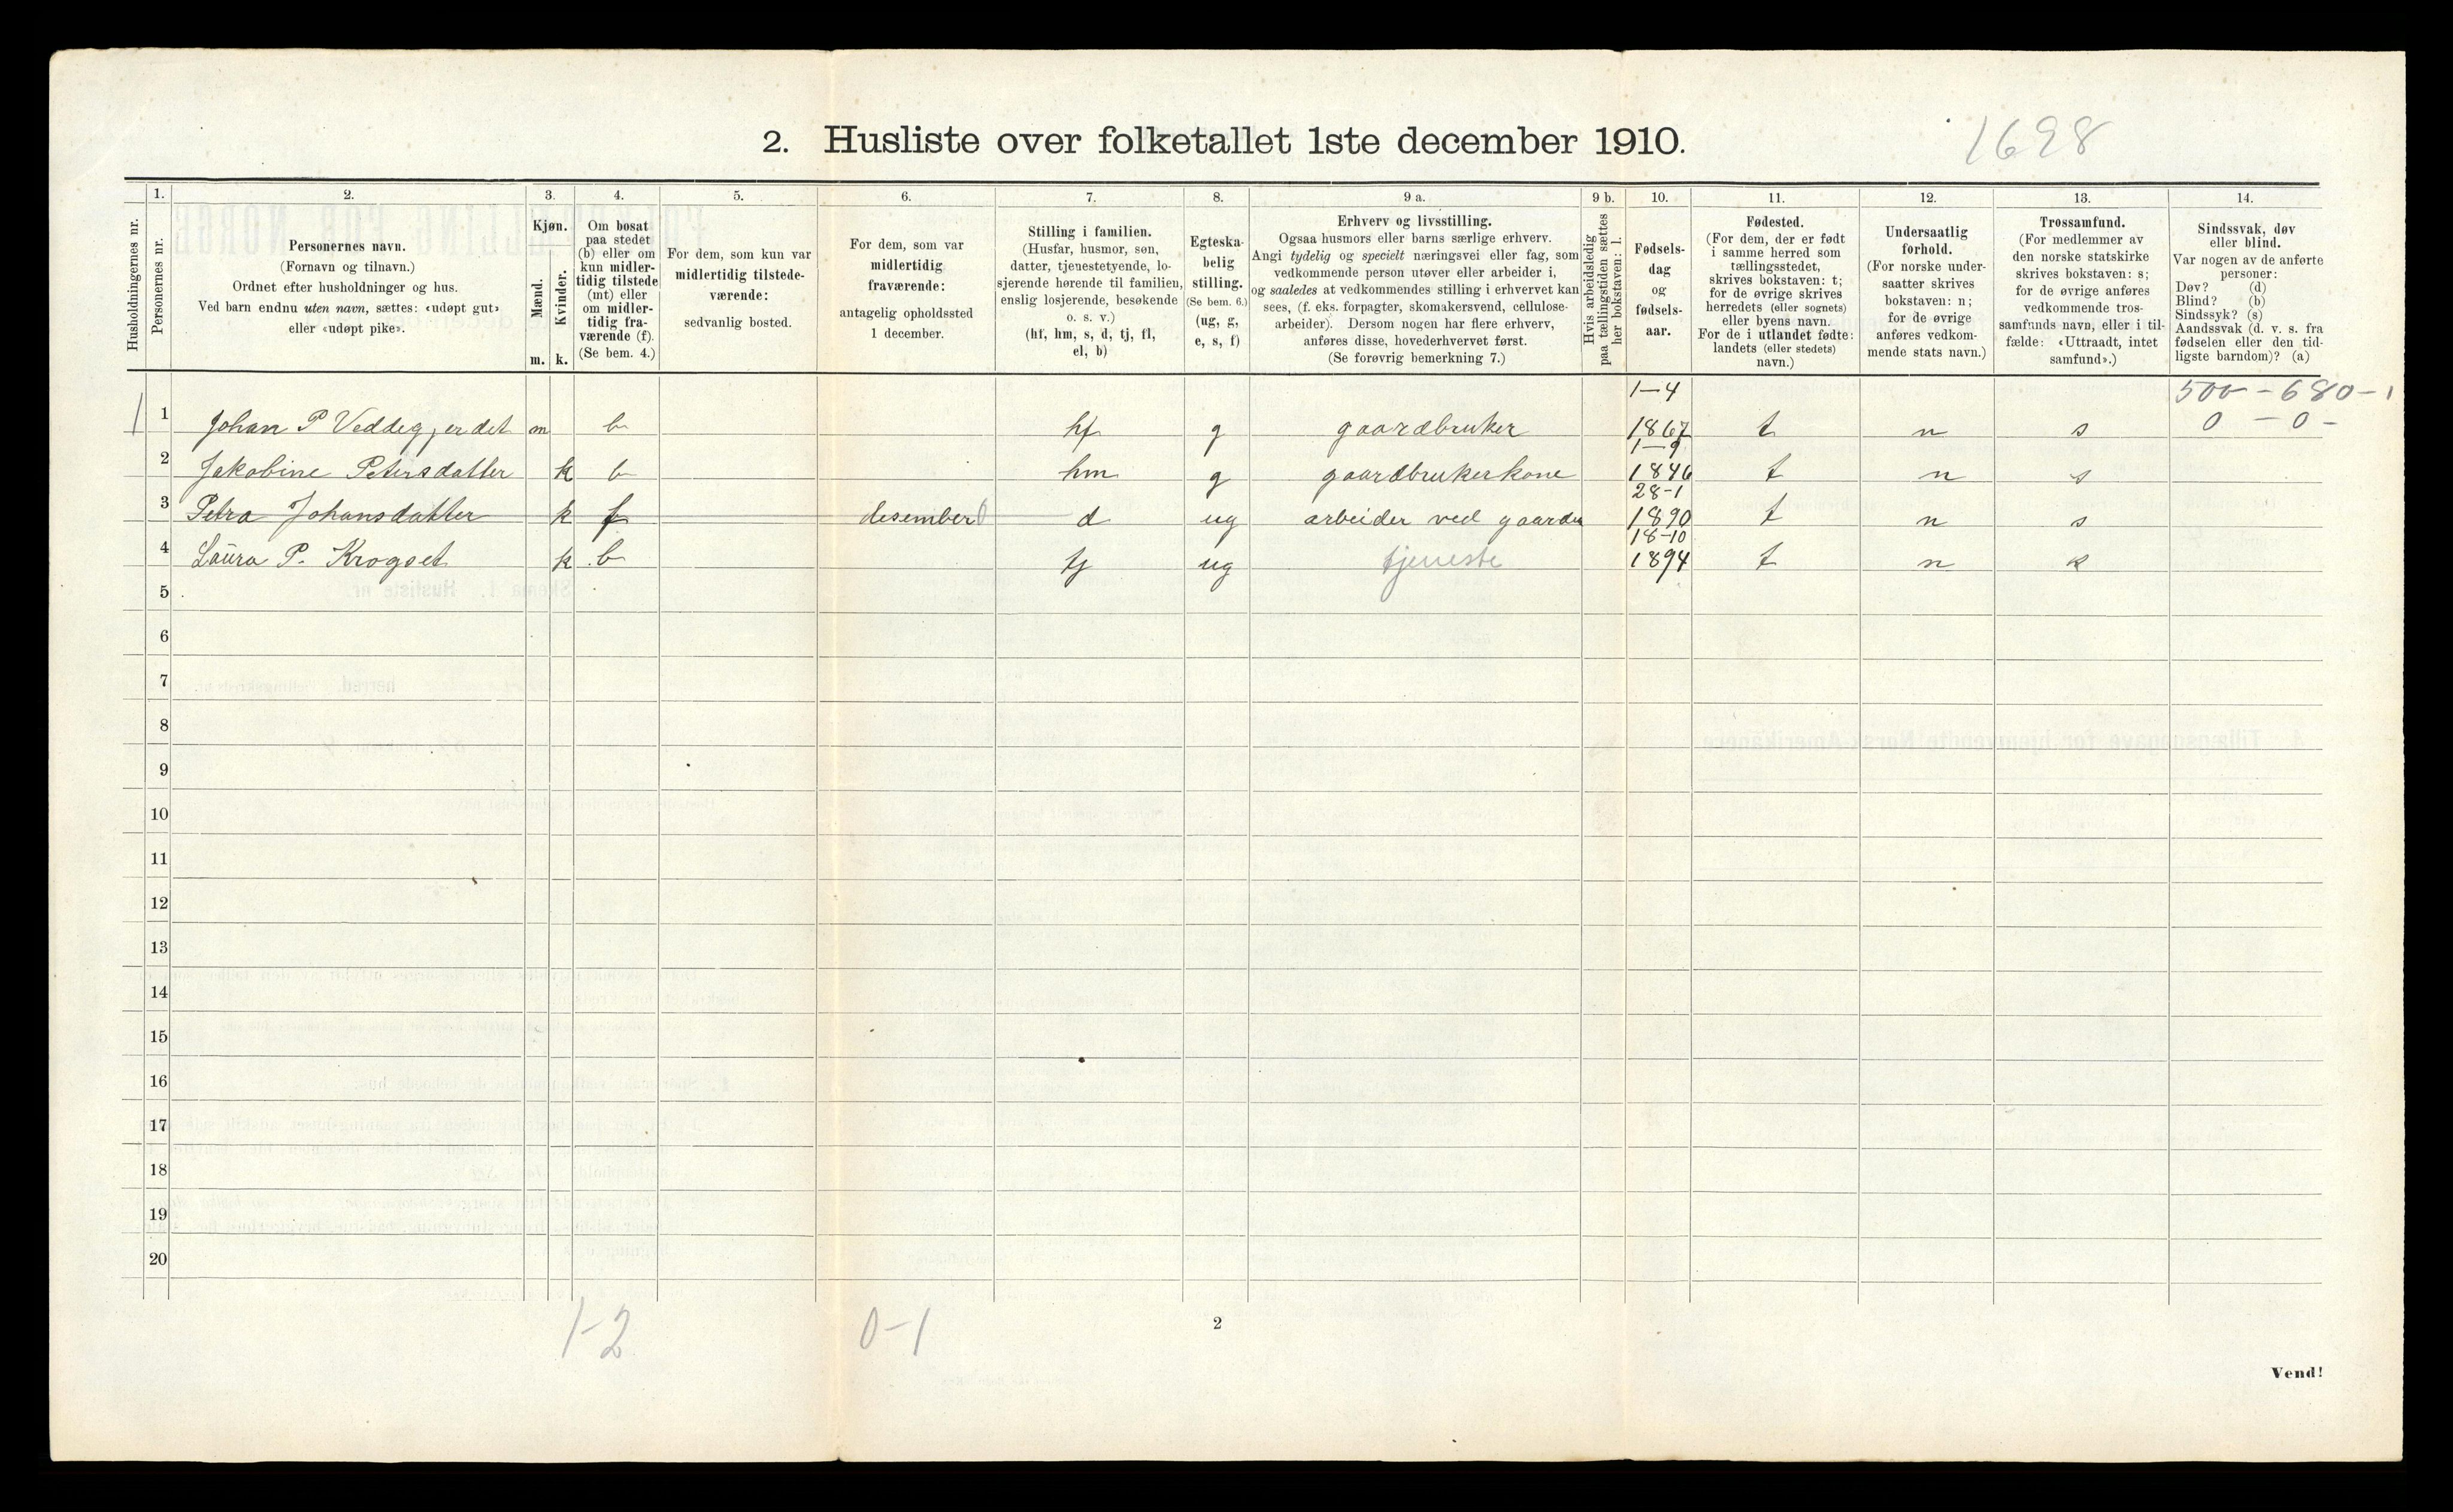 2. Husliste over folketallet 1ste december 1910.
1698
Husholdningernes nr.
1.
Personernes nr.
2.
Personernes navn.
(Fornavn og tilnavn.)
Ordnet efter husholdninger og hus.
Ved barn endnu uten navn, sættes: «udøpt gut»
eller «udøpt pike».
3.
Kjøn.
Mænd.
Kvinder.
m.
k.
4.
Om bosat
paa stedet
(b) eller om
kun midler-
tidig tilstede
(mt) eller
om midler-
tidig fra-
værende (f).
(Se bem. 4.)
5.
For dem, som kun var
midlertidig tilstede-
værende:
sedvanlig bosted.
6.
For dem, som var
midlertidig
fraværende:
antagelig opholdssted
1 december.
7.
Stilling i familien.
(Husfar, husmor, søn,
datter, tjenestetyende, lo-
sjerende hørende til familien,
enslig losjerende, besøkende
o. s. v.)
(hf, hm, s, d, tj, fl,
el, b)
8.
Egteska-
belig
stilling.
(Se bem. 6.)
(ug, g,
e, s, f)
9 a.
Erhverv og livsstilling.
Ogsaa husmors eller barns særlige erhverv.
Angi tydelig og specielt næringsvei eller fag, som
vedkommende person utøver eller arbeider i,
og saaledes at vedkommendes stilling i erhvervet kan
sees, (f. eks. forpagter, skomakersvend, cellulose-
arbeider). Dersom nogen har flere erhverv,
anføres disse, hovederhvervet først.
(Se forøvrig bemerkning 7.)
9 b.
Hvis arbeidsledig
paa tællingstiden sættes
her bokstaven: l.
10.
Fødsels-
dag
og
fødsels-
aar.
11.
Fødested.
(For dem, der er født
i samme herred som
tællingsstedet,
skrives bokstaven: t;
for de øvrige skrives
herredets (eller sognets)
eller byens navn.
For de i utlandet fødte:
landets (eller stedets)
navn.)
12.
Undersaatlig
forhold.
(For norske under-
saatter skrives
bokstaven: n;
for de øvrige
anføres vedkom-
mende stats navn.)
13.
Trossamfund.
(For medlemmer av
den norske statskirke
skrives bokstaven: s;
for de øvrige anføres
vedkommende tros-
samfunds navn, eller i til-
fælde: «Uttraadt, intet
samfund».)
14.
Sindssvak, døv
eller blind.
Var nogen av de anførte
personer:
Døv? (d)
Blind? (b)
Sindssyk? (s)
Aandssvak (d. v. s. fra
fødselen eller den tid-
ligste barndom)? (a)
500 - 680 - 1
0 - 0 -
1 1 Johan P Veddeg, erdet m b hf g gaardbruker 1-4 1867 t n s
2 Jakobine Petersdatter k b hm g gaardbrukerkone 1-9 1846 t n s
3 Petra Johansdatter k f desember d ug arbeider ved gaarden 28-1 1890 t n s
4 Laura P. Krogset k b tj ug tjeneste 18-10 1894 t n s
5
6
7
8
9
10
11
12
13
14
15
16
17
18
19
20
1-2
0-1
2
Vend!